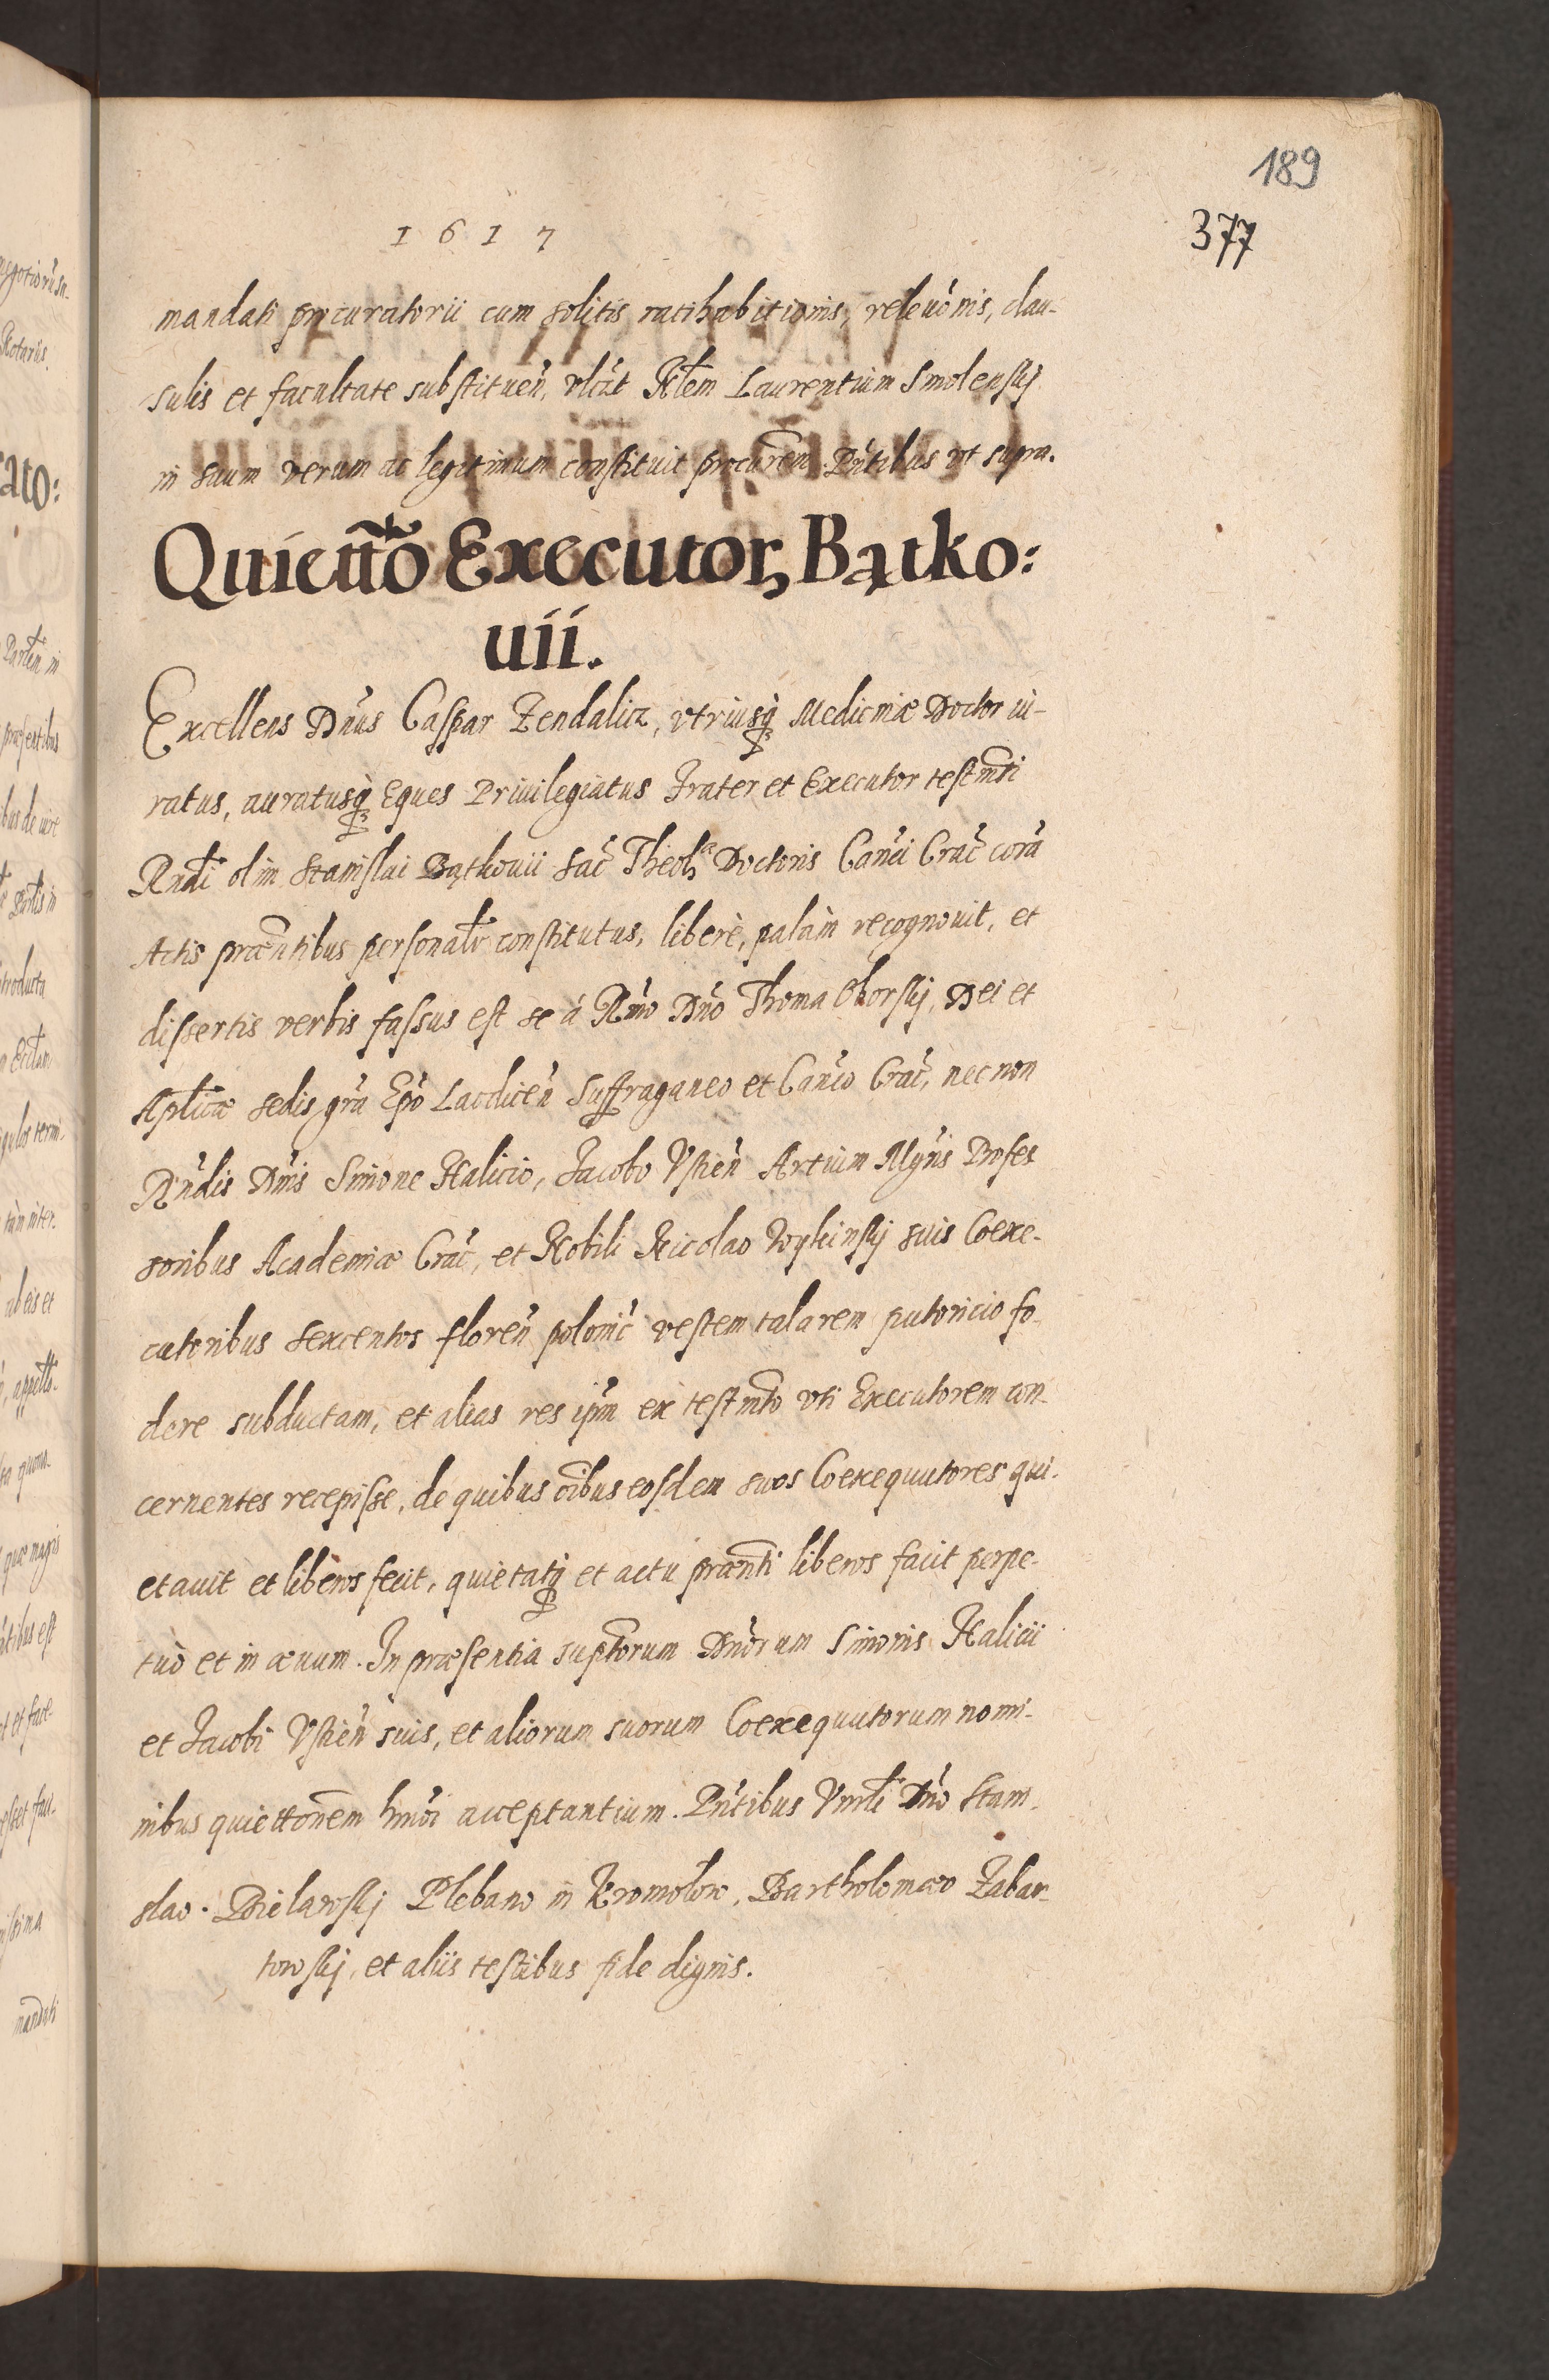 189
377
1617
mandati procuratorii cum solitis ratihabitionis, releuõnis, clau-
sulis et facultate substituen̄, vlczt Nłem Laurentium Smolenskj
in suum verum ac legitimum constituit procurẽm. Pn̄tibus vt supra.
Quiettõ Executorꝝ Bątko:
uii.
Excellens Dn̄us Caspar Zendalicz, vtriusq́ꝫ Medicinæ Doctor iu-
ratus, auratusq́ꝫ Eques Priuilegiatus Frater et Executor testm̃ti
Rn̄di olim Stanislai Bątkouii Sac̄ Theolꝝ Doctoris Can̄ci Crac̄ corā
Actis præñtibus personałr constitutus, liberè, palàm recognouit, et
dissertis verbis fassus est se á Rm̄o Dn̄o Thoma Oborskj, Dei et
Aplicæ Sedis grā Ep̄o Laodicen̄ Suffraganeo et Can̄co Crac̄, nec non
Rn̄dis Dn̄is Simone Halicio, Jacobo Vstien̄ Artium Mgr̄is Profes
soribus Academiæ Crac̄, et Nobili Nicolao Wykinskj suis Coexe-
cutoribus sexcentos floren̄ polonic̄ vestem talarem putoricio fo-
dere subductam, et alias res ip̄m ex testm̃to vti Executorem con-
cernentes recepisse, de quibus oĩbus eosdem suos Coexequutores qui-
etauit et liberos fecit, quietatq́ꝫ et actu præñti liberos facit perpe-
tuò et in æuum. In præsentia suptorum Dn̄orum Simonis Halicii
et Jacobi Vstien̄ suis, et aliorum suorum Coexequutorum nomi-
nibus quiettonẽm hm̄oi acceptantium. Pn̄tibus Vnrłi Dn̄o Stani-
slao. Bielawskj Plebano in Kromolow, Bartholomæo Zabar
towskj, et aliis testibus fide dignis.